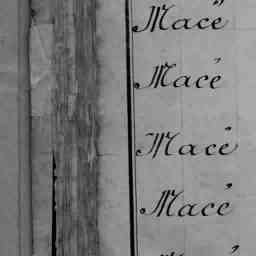 Macé
Macé
Macé
Macé